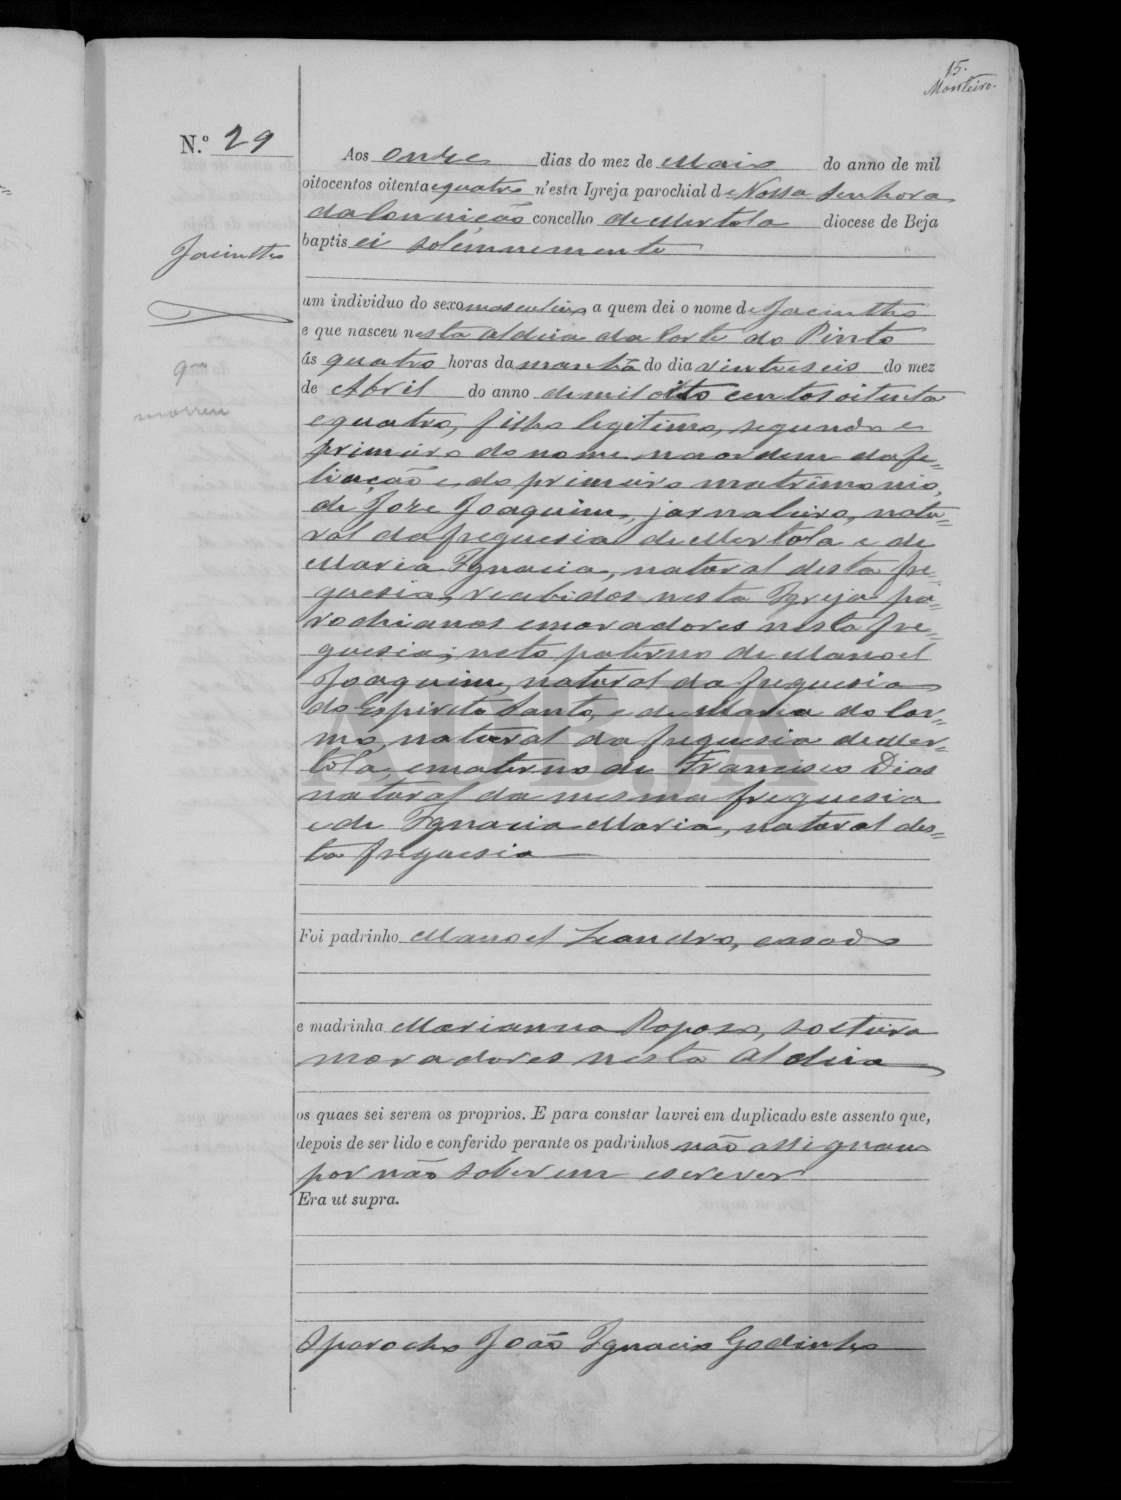 15.
Monteiro.
N.º 29
Aos onze dias do mez de Maio do anno de mil
oitocentos oitenta e quatro n'esta Igreja parochial de Nossa Senhora
da Conceição concelho de Mertola diocese de Beja
baptisei solemnemente
Jacintho
um individuo do sexo masculino a quem dei o nome de Jacintho
e que nasceu nesta aldeia da Corte do Pinto
ás quatro horas da manhã do dia vinteseis do mez
de Abril do anno de mil oito centos oitenta
morreu
e quatro, filho legitimo, segundo e
primeiro do nome na ordem da fe=
liação e do primeiro matrimonio,
de Joze Joaquim, jornaleiro, natu=
ral da freguesia de Mertola e de
Maria Ignacia, natural desta fre=
guesia, recebidos nesta Igreja pa=
rochianos e moradores nesta fre=
guesia; neto paterno de Manoel
Joaquim, natural da freguesia
do Espirito Santo, e de Maria do Car=
mo, natural da freguesia de Mer=
tola, e materno de Francisco Dias
natural da mesma freguesia
e de Ignacia Maria, natural des=
ta freguesia
AD BEJA
Foi padrinho Manoel Leandro, casado
e madrinha Marianna Raposo, solteira
moradores nesta Aldeia
os quaes sei serem os proprios. E para constar lavrei em duplicado este assento que,
depois de ser lido e conferido perante os padrinhos não assignam
por não saberem escrever
Era ut supra.
O parocho João Ignacio Godinho